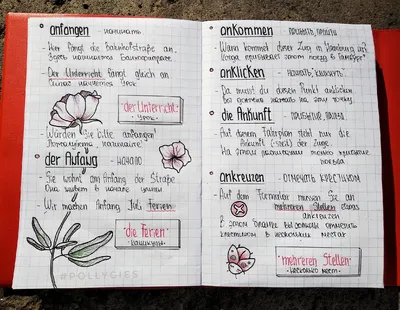 anfangen - начинать
- Hier fängt die Bahnhofstraße an.
Здесь начинается Банхофштрассе
- Der Unterricht fängt gleich an.
Сейчас начнётся урок
der Unterricht
- урок
- Würden Sie bitte anfangen!
Пожалуйста, начинайте!
der Anfang - начало
- Sie wohnt am Anfang der Straße
Она живёт в начале улицы
- Wir machen Anfang Juli Ferien
die Ferien
- каникулы
#POLLYGIES
ankommen - прибывать, прийти
- Wann kommt dieser Zug in Hamburg an?
Когда прибывает этот поезд в Гамбург?
anklicken - нажать, "кликнуть"
- Da musst du diesen Punkt anklicken
die Ankunft - прибытие
- Auf diesem Fahrplan steht nur die
Ankunft der Züge.
На этом расписании только прибытие
поезда
ankreuzen - отмечать крестиком
- Auf dem Formular müssen Sie an
mehreren Stellen etwas
ankreuzen
В этом бланке Вы должны отметить
крестиком в нескольких местах
mehreren Stellen
- несколько мест -